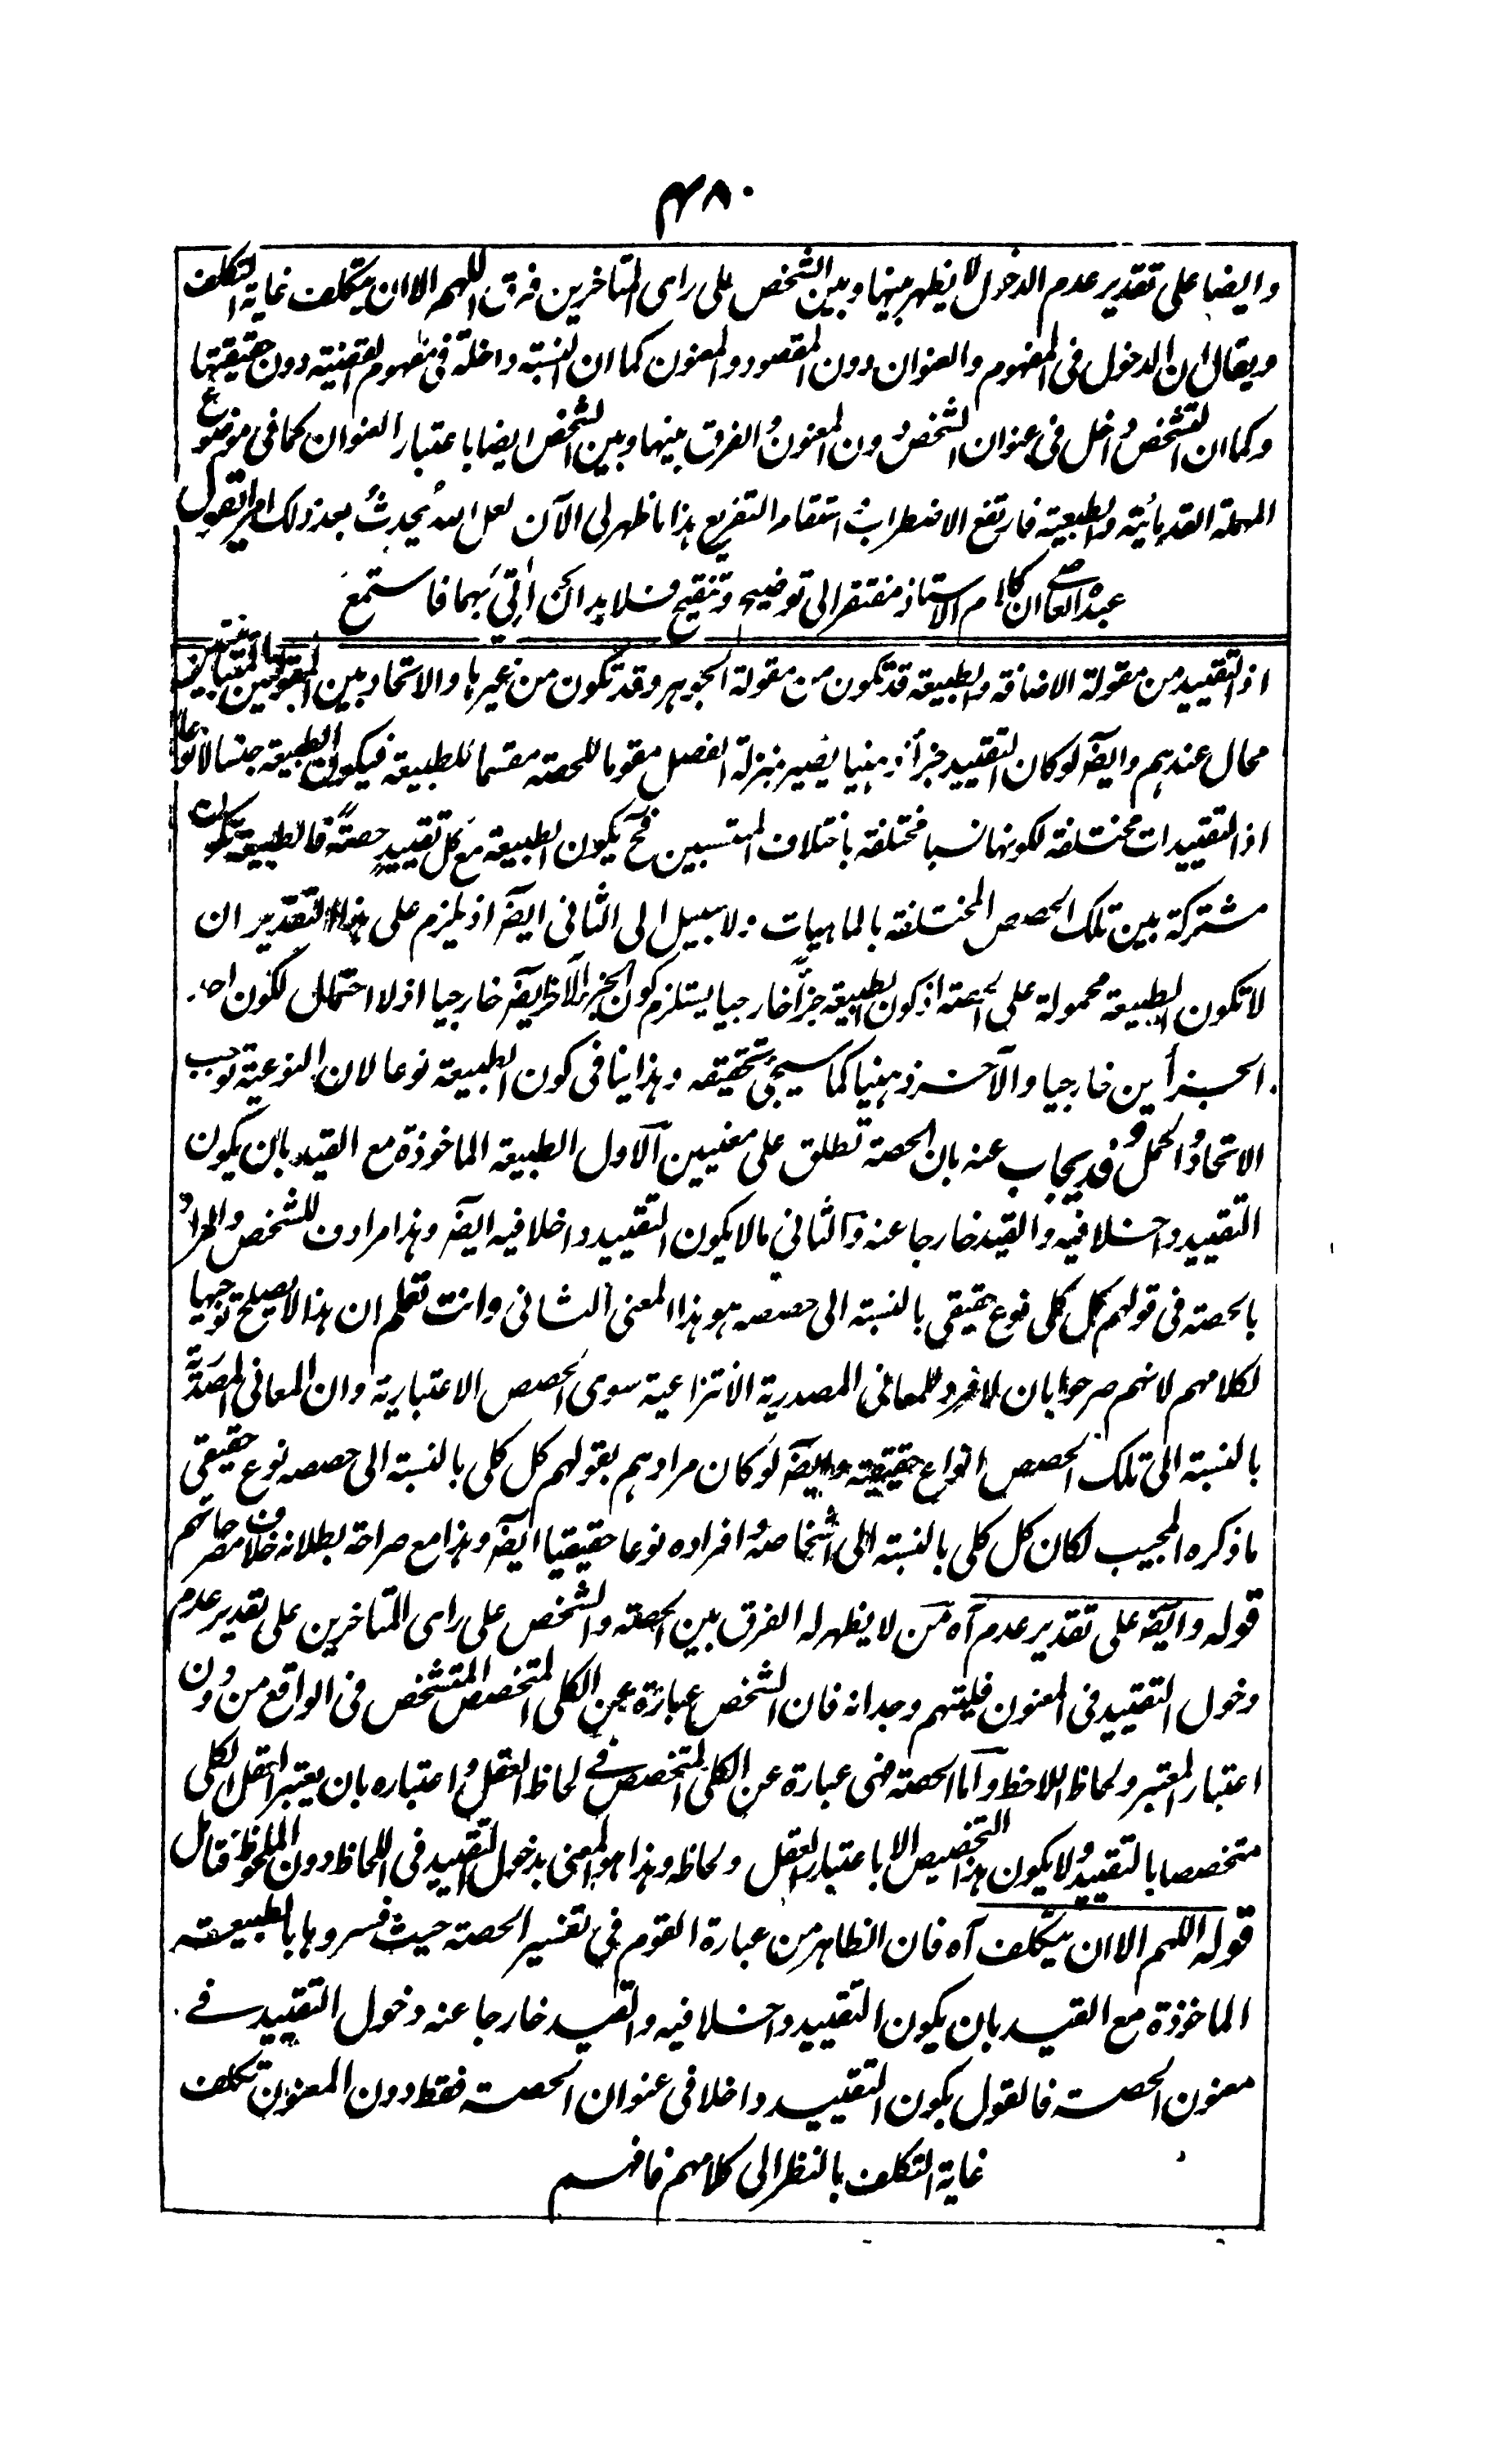 ۴۸۰
وايضا على تقدير عدم الدخول لا يظهر بينها وبين الشخص على راى المتاخرين فرق اللهم الا ان يتكلف غاية التكلف
ويقال ان الدخول فى المفهوم والعنوان دون المقصود والمعنون كما ان النسبة داخلة فى مفهوم القضية دون حقيقتها
وكما ان التشخص داخل فى عنوان الشخص دون المعنون والفرق بينها وبين الشخص ايضا باعتبار العنوان كما فى موضوع
المهملة القدمائية والطبيعية فارتفع الاضطراب واستقام التفريع هذا ما ظهر لى الآن لعل الله يحدث بعد ذلك امرا تقول
عبد العاصى ان كلام الاستاذ مفتقر الى توضيح وتنقيح فلا بد ان آتى بهما فاستمع
اذ التقييد من مقولة الاضافة والطبيعة قد تكون من مقولة الجوهر وقد تكون من غيرها والاتحاد بين المقولتين المتباينتين
محال عندهم وايضۤ لو كان التقييد جزأ ذهنيا يصير بمنزلة الفصل مقوما للحصة مقسما للطبيعة فيكون الطبيعة جنسا لا نوعا
اذ التقييدات مختلفة لكونها نسبا مختلفة باختلاف المنتسبين فح يكون الطبيعة مع كل تقييد حصة فالطبيعة تكون
مشتركة بين تلك الحصص المختلفة بالماهيات ولا سبيل الى الثانى ايضۤ اذ يلزم على هذا التقدير ان
لا تكون الطبيعة محمولة على الحصة اذ كون الطبيعة جزأ خارجيا يستلزم كون الجزء الآخر ايضۤ خارجيا اذ لا احتمال لكون احد
الجزأين خارجيا والآخر ذهنيا كما سيجئ تحقيقه وهذا ينافى كون الطبيعة نوعا لان النوعية توجب
الاتحاد والحمل وقد يجاب عنه بان الحصة تطلق على معنيين الاول الطبيعة الماخوذة مع القيد بان يكون
التقييد داخلا فيه والقيد خارجا عنه والثانى ما لا يكون التقييد داخلا فيه ايضۤ وهذا مرادف للشخص والمراد
بالحصة فى قولهم كل كلى نوع حقيقى بالنسبة الى حصصه هو هذا المعنى الثانى وانت تعلم ان هذا لا يصلح توجيها
لكلامهم لانهم صرحوا بان لا فرد للمعانى المصدرية الانتزاعية سوى الحصص الاعتبارية وان المعانى المصدرية
بالنسبة الى تلك الحصص انواع حقيقية وايضۤ لو كان مرادهم بقولهم كل كلى بالنسبة الى حصصه نوع حقيقى
ما ذكره المجيب لكان كل كلى بالنسبة الى اشخاصه وافراده نوعا حقيقيا ايضۤ وهذا مع صراحة بطلانه خلاف مصرحاتهم
قوله وايضۤ على تقدير عدم آه من لا يظهر له الفرق بين الحصة والشخص على راى المتاخرين على تقدير عدم
دخول التقييد فى المعنون فليتهم وجدانه فان الشخص عبارة عن الكلى المتخصص المتشخص فى الواقع من دون
اعتبار المعتبر ولحاظ اللاحظ واما الحصة فهى عبارة عن الكلى المتخصص فى لحاظ العقل واعتباره بان يعتبر العقل الكلى
متخصصا بالتقييد ولا يكون هذا التخصيص الا باعتبار العقل ولحاظه وهذا هو المعنى بدخول التقييد فى اللحاظ دون الملحوظ فتامل
قوله اللهم الا ان يتكلف آه فان الظاهر من عبارة القوم فى تفسير الحصة حيث فسروها بالطبيعة
الماخوذة مع القيد بان يكون التقييد داخلا فيه والقيد خارجا عنه دخول التقييد فى
معنون الحصة فالقول بكون التقييد داخلا فى عنوان الحصة فقط دون المعنون تكلف
غاية التكلف بالنظر الى كلامهم فافهم